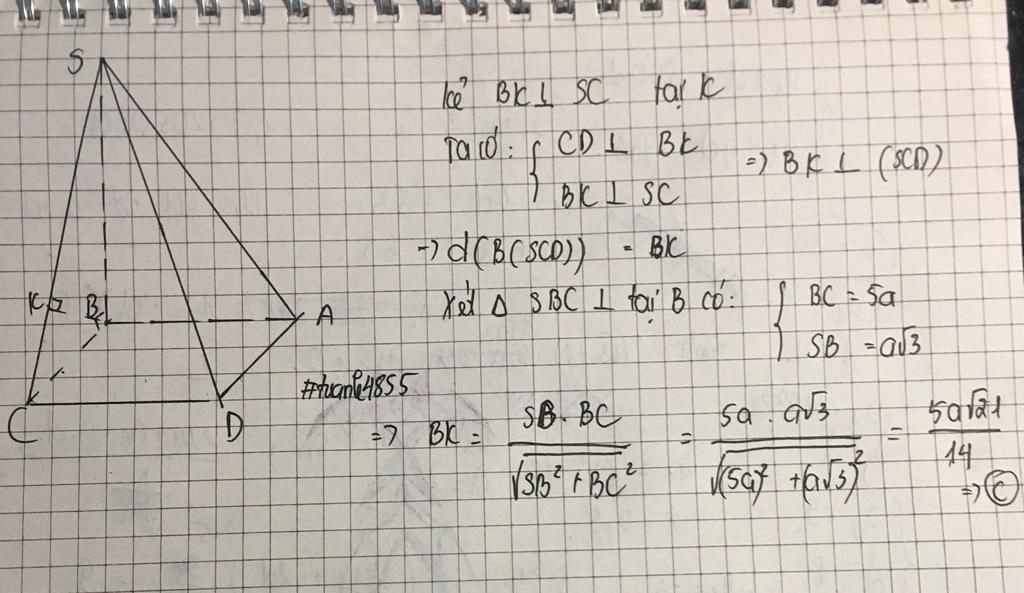 S
K
B
A
C
D
kẻ BK ⊥ SC tại K
Ta có: { CD ⊥ BK
BK ⊥ SC => BK ⊥ (SCD)
-> d(B(SCD)) = BK
Xét Δ SBC ⊥ tại B có: { BC = 5a
SB = a√3
#tuanle4855
=> BK = SB . BC / √(SB² + BC²) = 5a . a√3 / √((5a)² + (a√3)²) = 5a√21 / 14
=> C